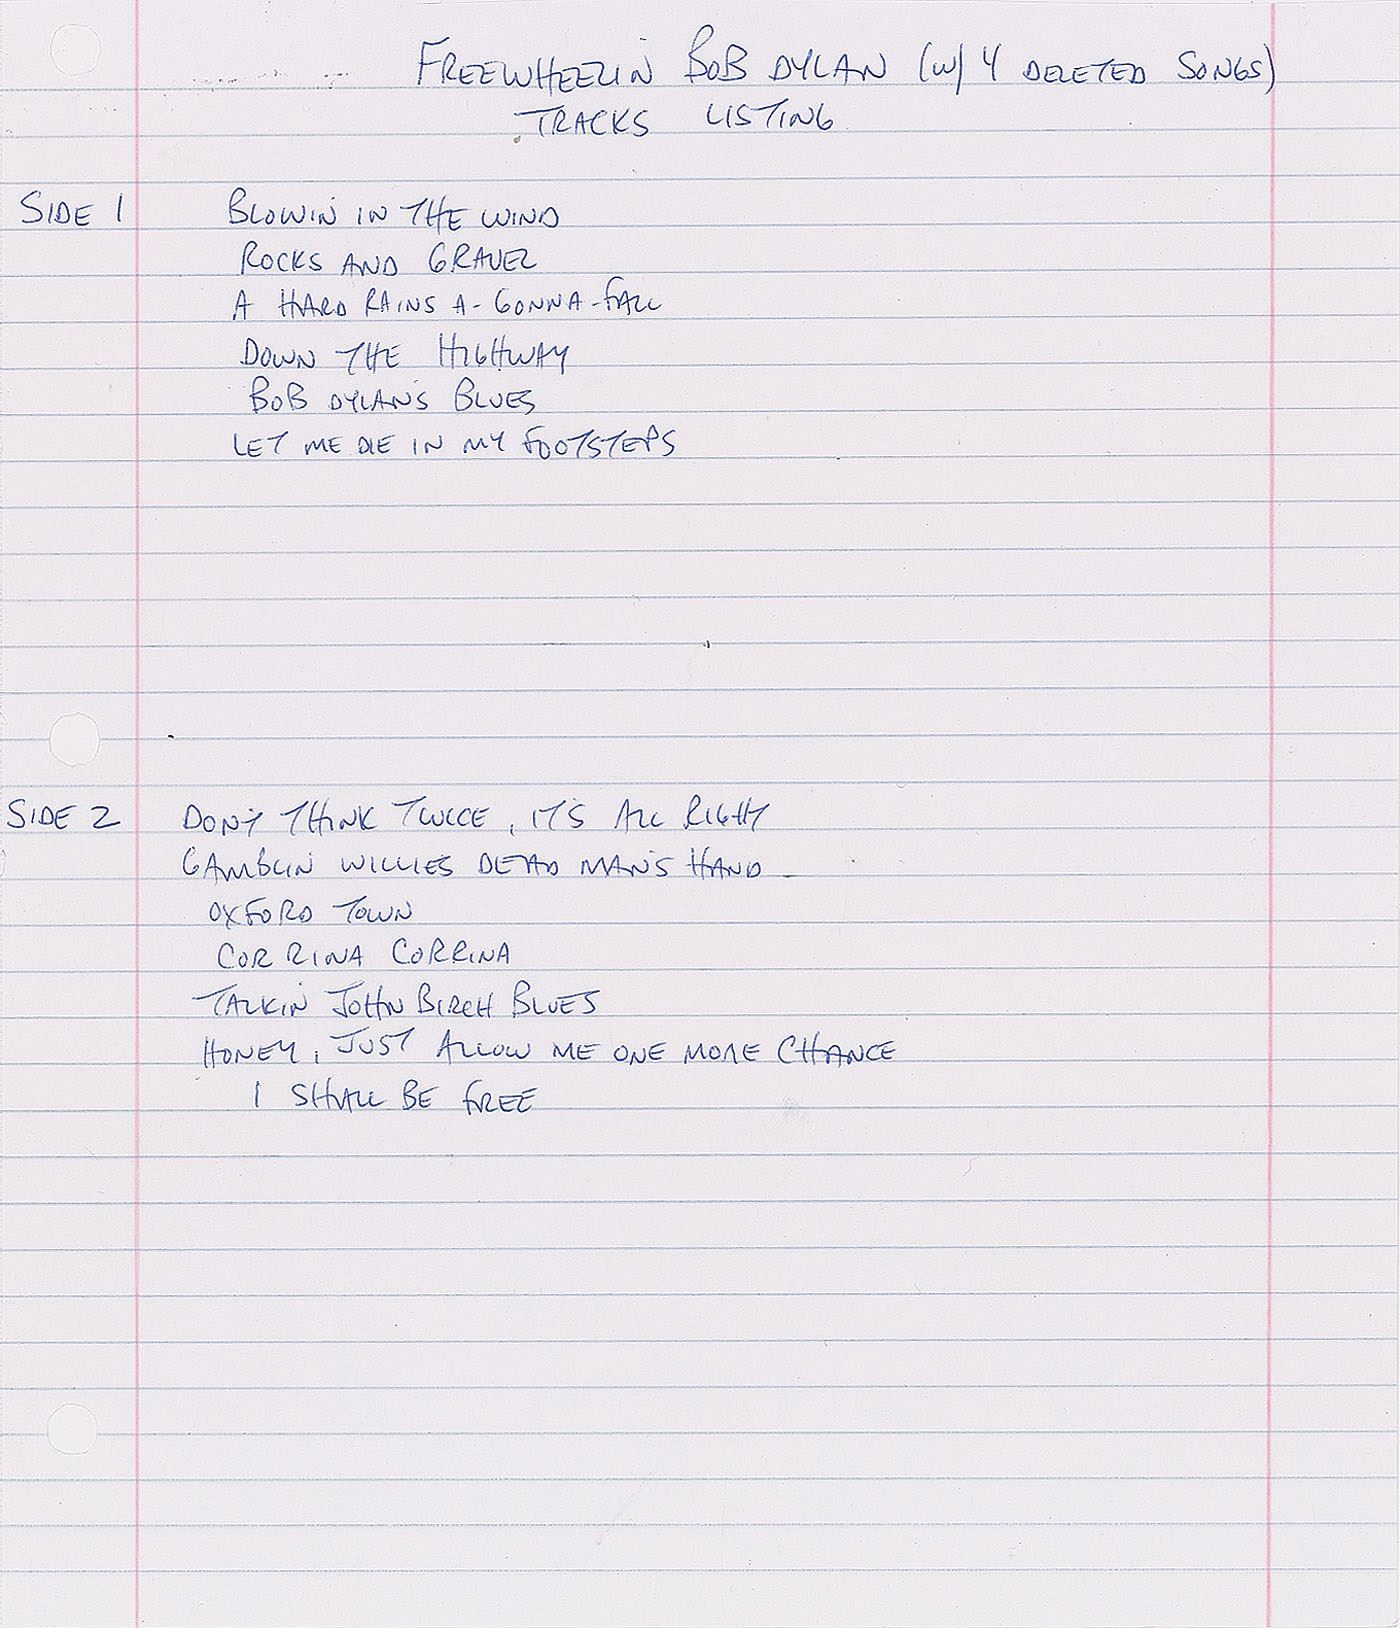 FREEWHEELIN' BOB DYLAN (W/ 4 DELETED SONGS)
TRACKS LISTING
SIDE 1 BLOWIN' IN THE WIND
ROCKS AND GRAVEL
A HARD RAINS A-GONNA-FALL
DOWN THE HIGHWAY
BOB DYLAN'S BLUES
LET ME DIE IN MY FOOTSTEPS
SIDE 2 DON'T THINK TWICE, IT'S ALL RIGHT
GAMBLIN' WILLIE'S DEAD MAN'S HAND
OXFORD TOWN
CORRINA CORRINA
TALKIN' JOHN BIRCH BLUES
HONEY, JUST ALLOW ME ONE MORE CHANCE
I SHALL BE FREE